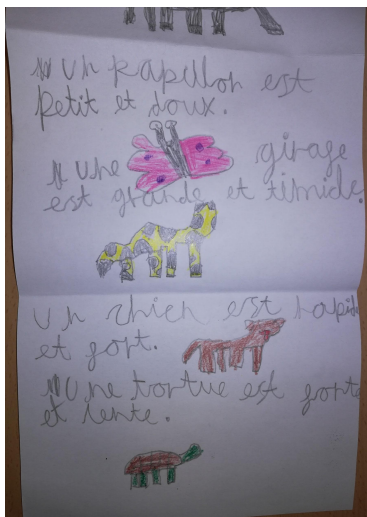 Un papillon est
petit et doux.
Une girafe
est grande et timide.
Un chien est rapide
et fort.
Une tortue est forte
et lente.